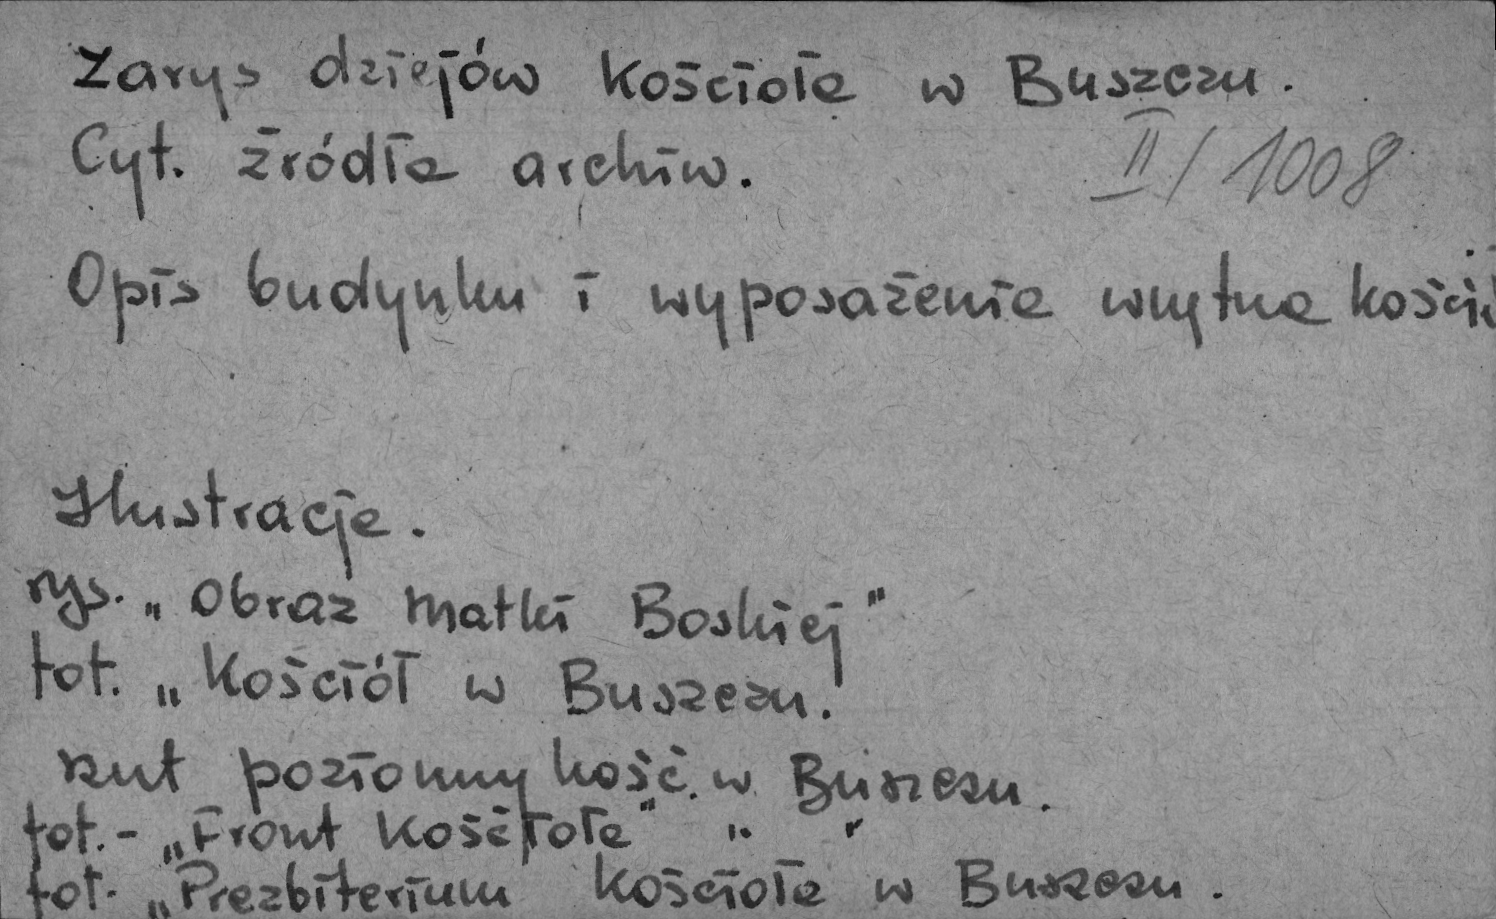 Zarys dziejów kościoła w Buszczu.
Cyt. źródła archiw.
II/1008
Opis budynku i wyposażenie wnętrza kości
Ilustracje.
rys. „Obraz Matki Boskiej"
fot. „Kościół w Buszczu.
rzut poziomy kość. w Buszczu.
fot. - „Front Kościoła" " "
fot. „Prezbiterium kościoła w Buszczu.